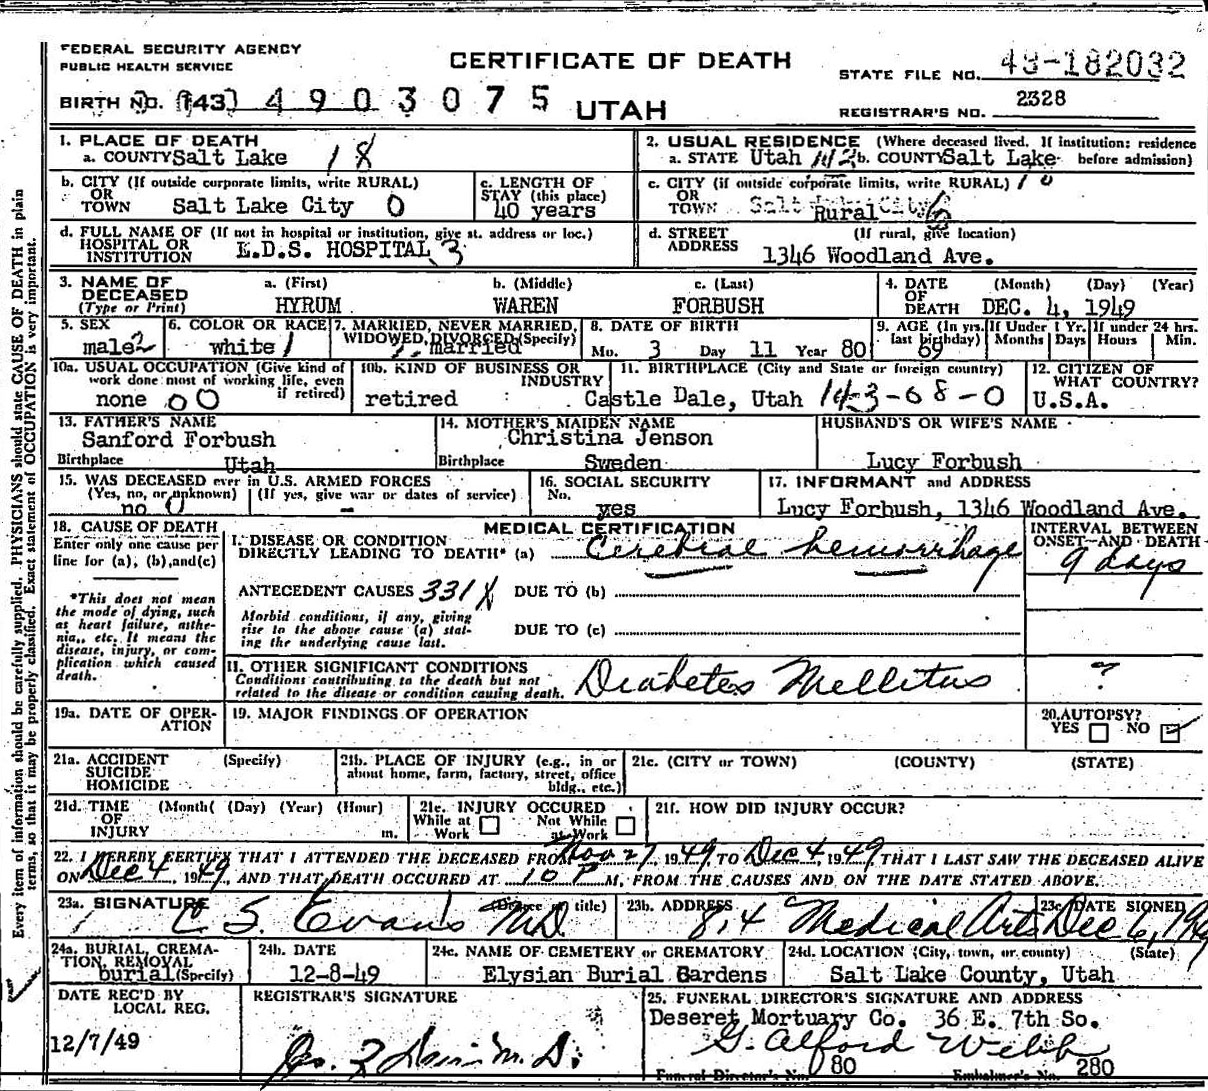 FEDERAL SECURITY AGENCY
PUBLIC HEALTH SERVICE
CERTIFICATE OF DEATH
UTAH
STATE FILE NO. 43-182032
BIRTH NO. (143) 4903075
REGISTRAR'S NO. 2328
Every item of information should be carefully supplied. PHYSICIANS should state CAUSE OF DEATH in plain
terms, so that it may be properly classified. Exact statement of OCCUPATION is very important.
1. PLACE OF DEATH
a. COUNTY Salt Lake 18
2. USUAL RESIDENCE (Where deceased lived. If institution: residence
a. STATE Utah 142 b. COUNTY Salt Lake before admission)
b. CITY (If outside corporate limits, write RURAL)
OR
TOWN Salt Lake City 0
c. LENGTH OF
STAY (this place)
40 years
c. CITY (if outside corporate limits, write RURAL)
OR
TOWN Salt Lake City
Rural
d. FULL NAME OF (If not in hospital or institution, give st. address or loc.)
HOSPITAL OR
INSTITUTION L.D.S. HOSPITAL 3
d. STREET (If rural, give location)
ADDRESS
1346 Woodland Ave.
3. NAME OF DECEASED
(Type or Print)
a. (First) b. (Middle) c. (Last)
HYRUM WAREN FORBUSH
4. DATE (Month) (Day) (Year)
OF
DEATH DEC. 4, 1949
5. SEX
male 2
6. COLOR OR RACE
white 1
7. MARRIED, NEVER MARRIED,
WIDOWED, DIVORCED (Specify)
married
8. DATE OF BIRTH
Mo. 3 Day 11 Year 80
9. AGE (In yrs. last birthday)
69
If Under 1 Yr. Months Days
If under 24 hrs. Hours Min.
10a. USUAL OCCUPATION (Give kind of
work done most of working life, even
if retired)
none 00
10b. KIND OF BUSINESS OR
INDUSTRY
retired
11. BIRTHPLACE (City and State or foreign country)
Castle Dale, Utah 143-68-0
12. CITIZEN OF
WHAT COUNTRY?
U.S.A.
13. FATHER'S NAME
Sanford Forbush
Birthplace Utah
14. MOTHER'S MAIDEN NAME
Christina Jenson
Birthplace Sweden
HUSBAND'S OR WIFE'S NAME
Lucy Forbush
15. WAS DECEASED ever in U.S. ARMED FORCES
(Yes, no, or unknown) (If yes, give war or dates of service)
no 0 -
16. SOCIAL SECURITY
No.
yes
17. INFORMANT and ADDRESS
Lucy Forbush, 1346 Woodland Ave.
18. CAUSE OF DEATH
Enter only one cause per
line for (a), (b), and (c)
*This does not mean
the mode of dying, such
as heart failure, asthe-
nia, etc. It means the
disease, injury, or com-
plication which caused
death.
MEDICAL CERTIFICATION
I. DISEASE OR CONDITION
DIRECTLY LEADING TO DEATH* (a) Cerebral hemorrhage
INTERVAL BETWEEN
ONSET AND DEATH
9 days
ANTECEDENT CAUSES 331X DUE TO (b)
Morbid conditions, if any, giving
rise to the above cause (a) stat-
ing the underlying cause last.
DUE TO (c)
II. OTHER SIGNIFICANT CONDITIONS
Conditions contributing to the death but not
related to the disease or condition causing death.
Diabetes Mellitus ?
19a. DATE OF OPER-
ATION
19. MAJOR FINDINGS OF OPERATION
20. AUTOPSY?
YES NO
21a. ACCIDENT (Specify)
SUICIDE
HOMICIDE
21b. PLACE OF INJURY (e.g., in or
about home, farm, factory, street, office
bldg., etc.)
21c. (CITY or TOWN) (COUNTY) (STATE)
21d. TIME (Month( (Day) (Year) (Hour)
OF
INJURY m.
21e. INJURY OCCURED
While at Work Not While at Work
21f. HOW DID INJURY OCCUR?
22. I HEREBY CERTIFY THAT I ATTENDED THE DECEASED FROM Nov 27, 1949 TO Dec 4, 1949 THAT I LAST SAW THE DECEASED ALIVE
ON Dec 4, 1949, AND THAT DEATH OCCURED AT 10 P M, FROM THE CAUSES AND ON THE DATE STATED ABOVE.
23a. SIGNATURE (Degree or title)
C. S. Evans M.D.
23b. ADDRESS
814 Medical Arts
23c. DATE SIGNED
Dec 6, 1949
24a. BURIAL, CREMA-
TION, REMOVAL
burial (Specify)
24b. DATE
12-8-49
24c. NAME OF CEMETERY or CREMATORY
Elysian Burial Gardens
24d. LOCATION (City, town, or county) (State)
Salt Lake County, Utah
DATE REC'D BY
LOCAL REG.
12/7/49
REGISTRAR'S SIGNATURE
M.D.
25. FUNERAL DIRECTOR'S SIGNATURE AND ADDRESS
Deseret Mortuary Co. 36 E. 7th So.
G. Alford Webb
Funeral Director's No. 80 Embalmer's No. 280